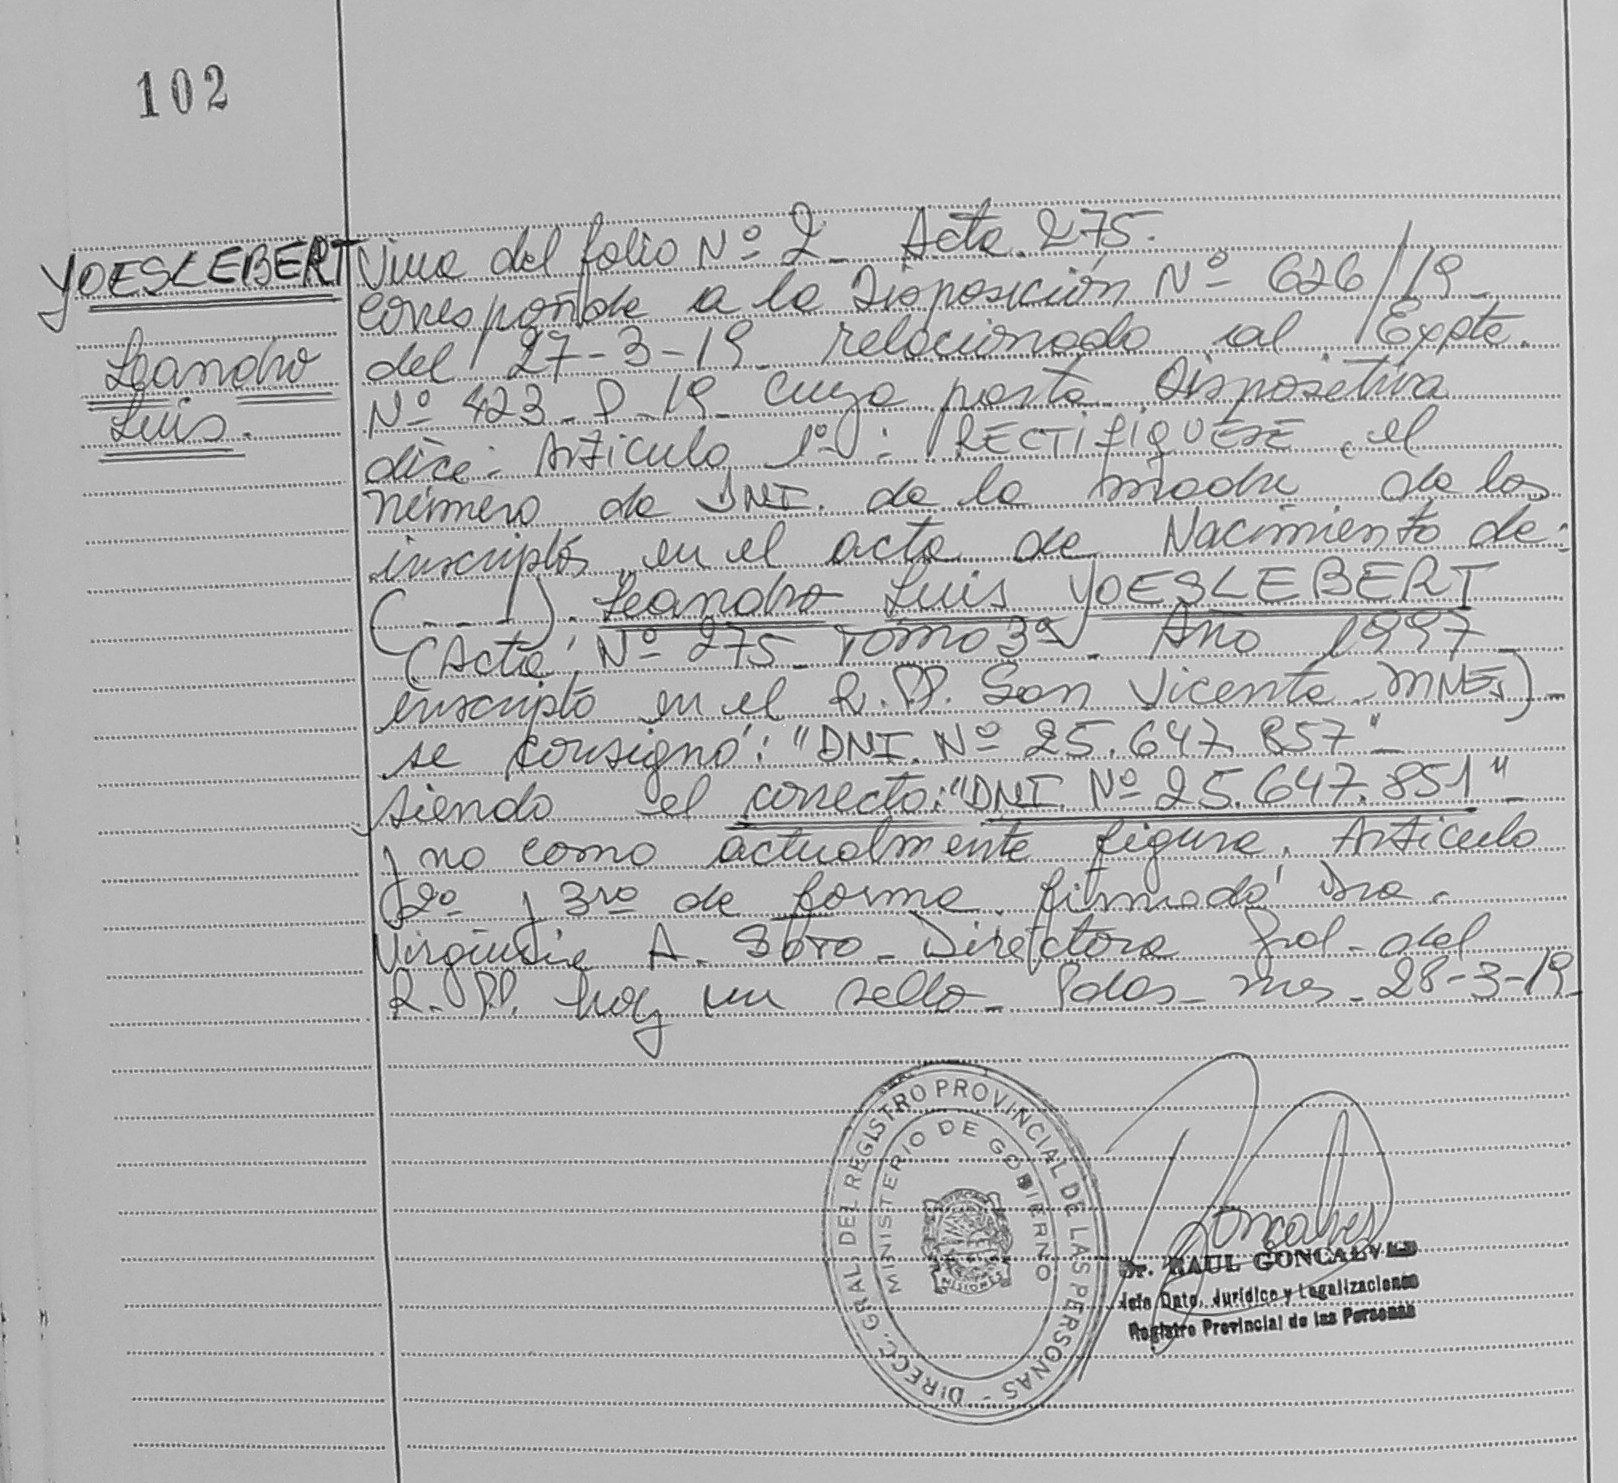 102
YOESLEBERT
Leandro
Luis.
Viene del folio Nº 2_ Acta. 275.
corresponde a la Disposición Nº 626/19_
del 27-3-19_ relacionado al Expte.
Nº 423_P_19_ cuya parte Dispositiva
dice: Artículo 1º: RECTIFIQUESE, el
número de DNI. de la madre de los
inscriptos en el acta de Nacimiento de:
(- - -). Leandro Luis YOESLEBERT
(Acta Nº 275_ Tomo 3º_ Año 1997_
inscripto en el R.PP. San Vicente_MNES)_
se consignó: "DNI. Nº 25.647.857"_
siendo el correcto: "DNI. Nº 25.647.851"_
y no como actualmente figura. Artículo
2º y 3ro de forma. firmado Dra.
Virginia A. Soto_ Directora Gral_del
R.PP. hay un sello_ Pdas_ mes_ 28-3-19_
DIRECC. GRAL. DEL REGISTRO PROVINCIAL DE LAS PERSONAS -
MINISTERIO DE GOBIERNO
MISIONES
Goncalves
Dr. RAUL GONCALVES
Jefe Dpto. Jurídico y Legalizaciones
Registro Provincial de las Personas